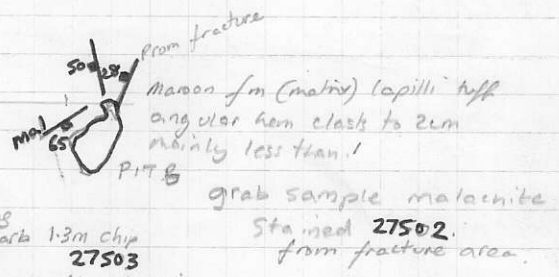 prom fracture
50 28
maroon fm (matrix) lapilli tuff
angular hem clasts to 2cm
mal
65
mainly less than .1
PIT B
grab sample malachite
stained 27502.
from fracture area.
arb 1.3m chip
27503